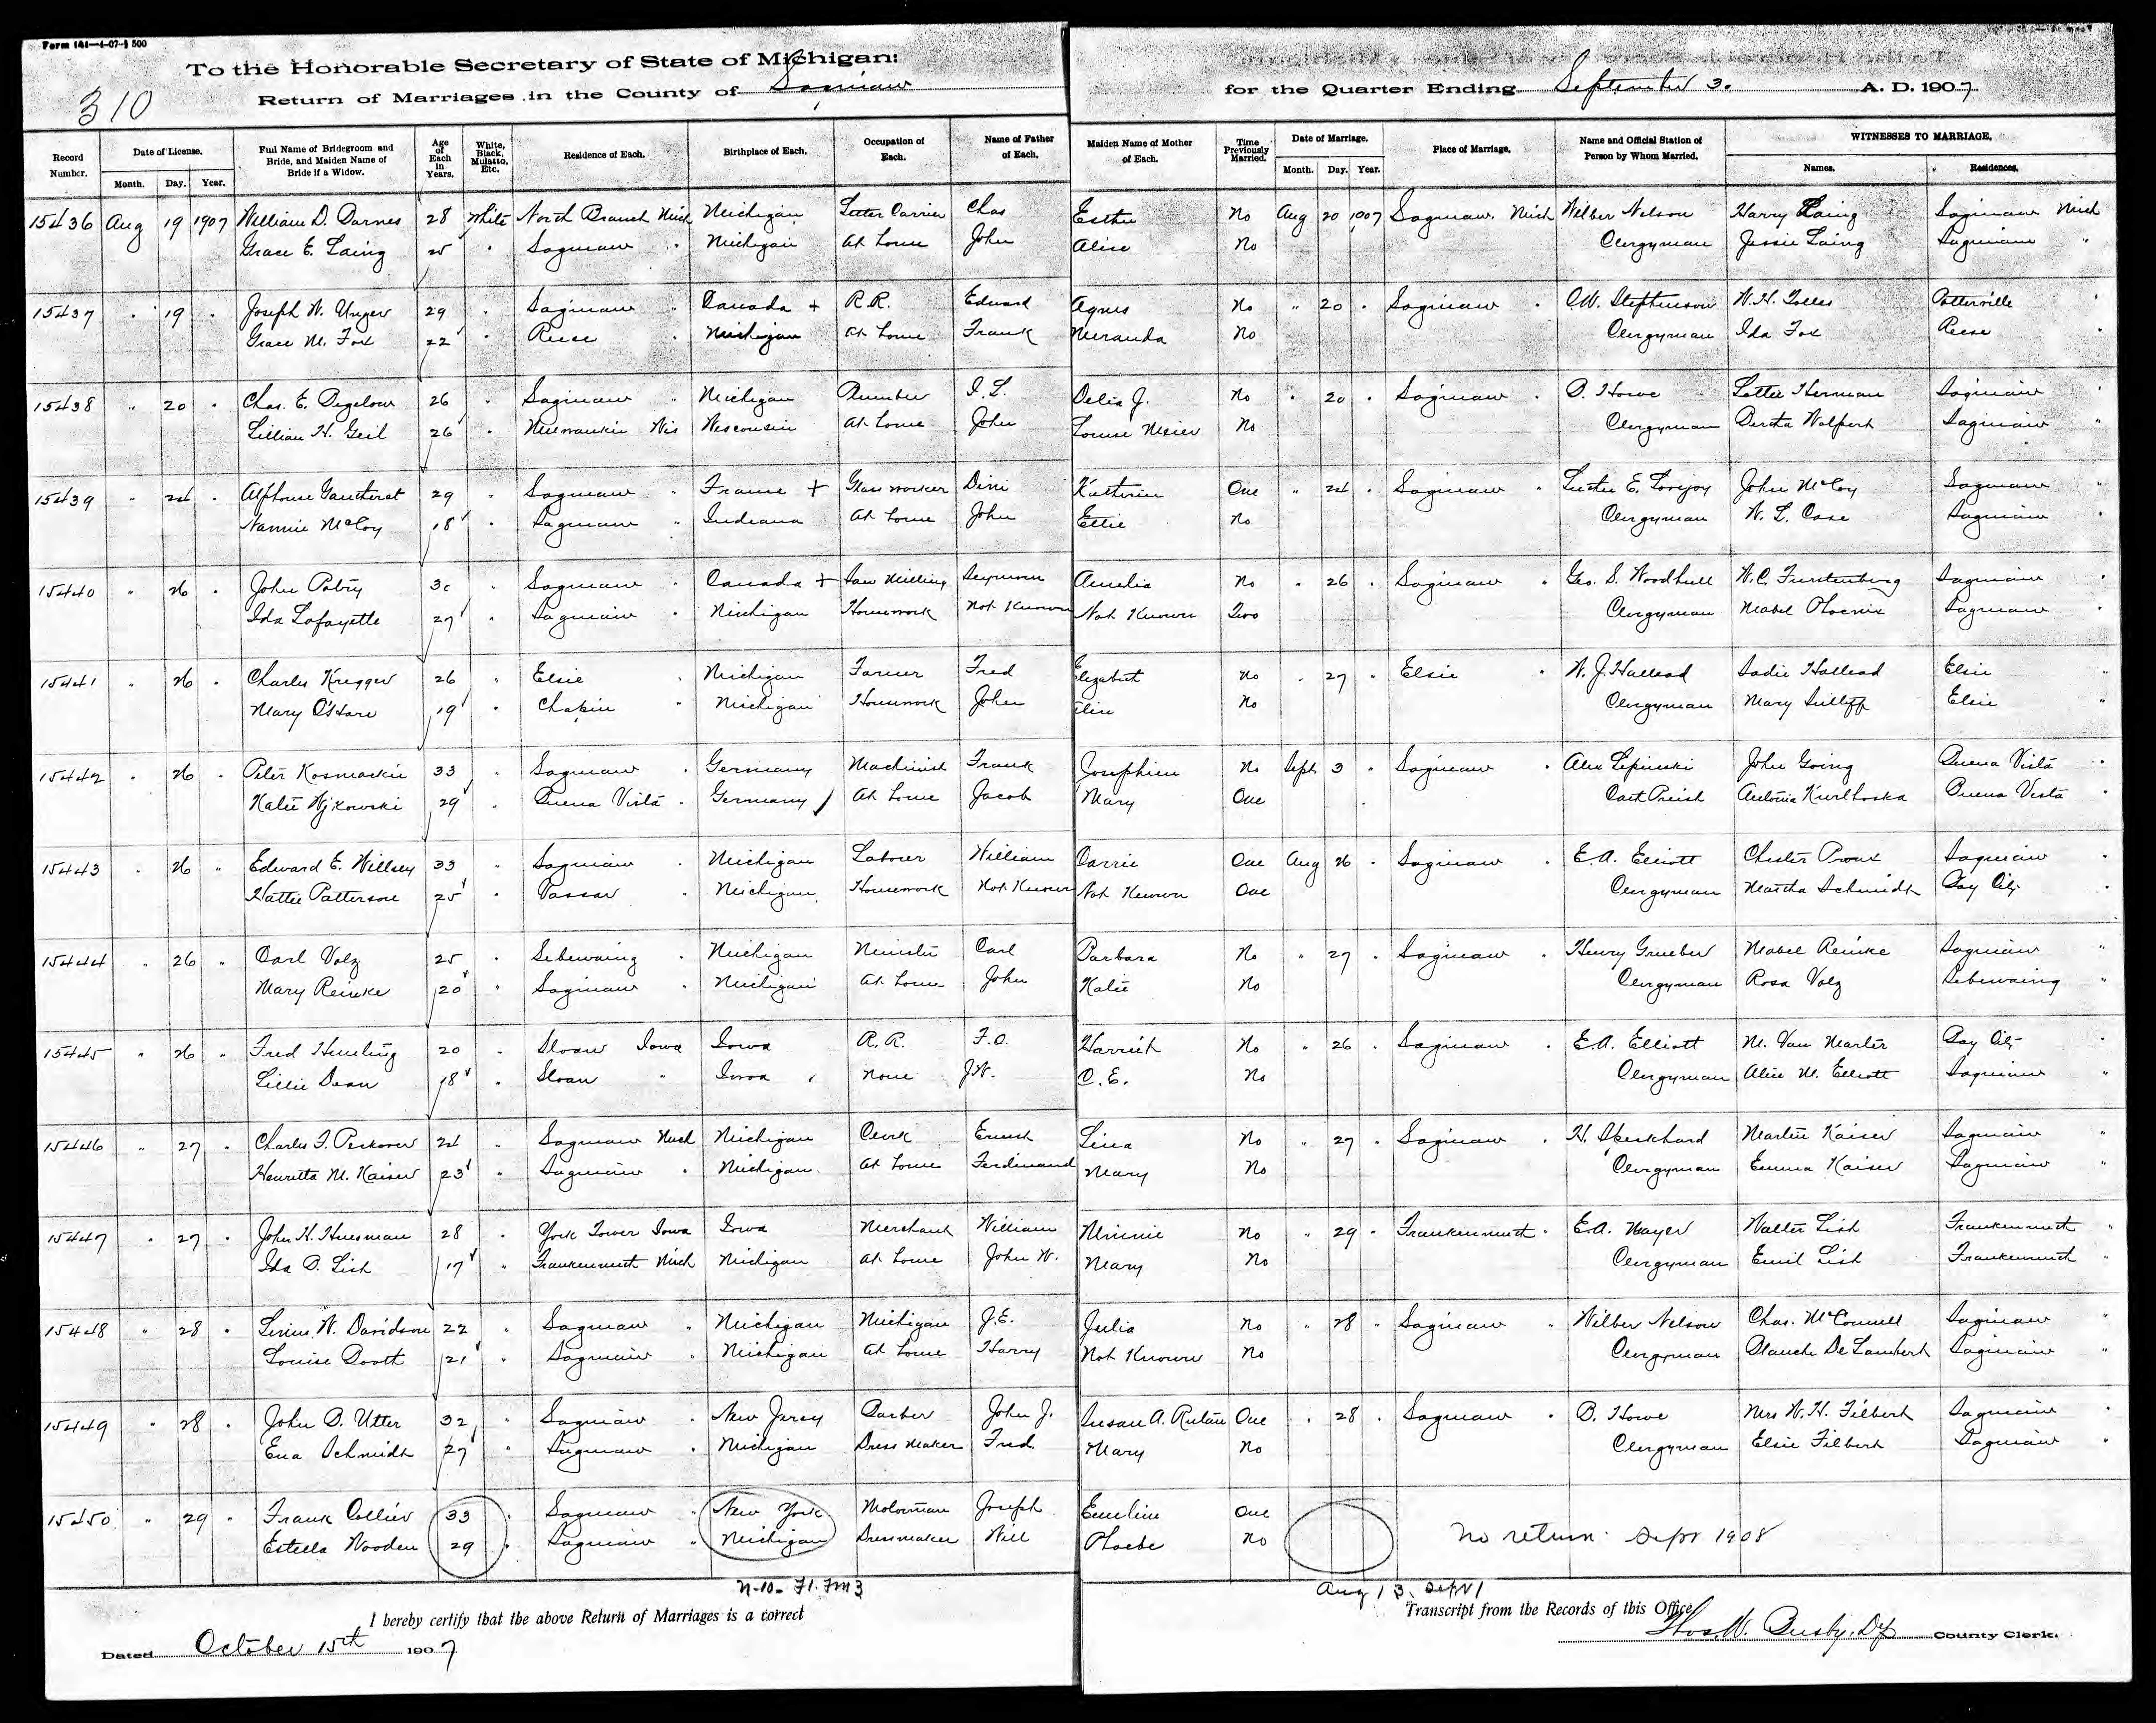 Form 141—4-07-1 500
To the Honorable Secretary of State of Michigan:
310
Return of Marriages in the County of Saginaw for the Quarter Ending September 3. A. D. 1907
Record Number. Date of License. Month. Day. Year. Full Name of Bridegroom and Bride, and Maiden Name of Bride if a Widow. Age of Each in Years. White, Black, Mulatto, Etc. Residence of Each. Birthplace of Each. Occupation of Each. Name of Father of Each. Maiden Name of Mother of Each. Time Previously Married. Date of Marriage. Month. Day. Year. Place of Marriage. Name and Official Station of Person by Whom Married. WITNESSES TO MARRIAGE. Names. Residences.
15436 Aug 19 1907 William D. Darnes 28 White North Branch Mich Michigan Letter Carrier Chas Esther No Aug 20 1907 Saginaw Mich Wilber Nelson Harry Laing Saginaw Mich
Grace E. Laing 25 " Saginaw " Michigan At home John Alice No Clergyman Jessie Laing Saginaw "
15437 " 19 " Joseph W. Unger 29 " Saginaw " Canada + R.R. Edward Agnes No " 20 " Saginaw " O.W. Stephenson W.H. Tolles Potterville
Grace M. Fox 22 " Reese " Michigan At home Frank Meranda No Clergyman Ida Fox Reese "
15438 " 20 " Chas. E. Bigelow 26 " Saginaw " Michigan Plumber I.L. Delia J. No " 20 " Saginaw " B. Howe Lottie Herman Saginaw "
Lillian H. Geil 26 " Milwaukie Wis Wisconsin At home John Louise Meier No Clergyman Bertha Wolfert Saginaw "
15439 " 24 " Alphonse Gautherat 29 " Saginaw " France + Glass worker Katherine One " 24 " Saginaw " Luther E. Lovejoy John McCoy Saginaw "
Nannie McCoy 18 " Saginaw " Indiana At home John Ellie No Clergyman W. L. Case Saginaw "
15440 " 26 " John Patry 30 " Saginaw " Canada + Saw Milling Amelia No " 26 " Saginaw " Geo. S. Woodhull W.C. Furstenberg Saginaw "
Ida Lafayette 27 " Saginaw " Michigan Housework Not Known Not Known Two Clergyman Mabel Phoenix Saginaw "
15441 " 26 " Charles Kregger 26 " Elsie " Michigan Farmer Fred Elizabeth No " 27 " Elsie " W. J. Hallead Sadie Hallead Elsie "
Mary O'Hare 19 " Chapin " Michigan Housework John No Clergyman Mary Sutliff Elsie "
15442 " 26 " Peter Kosmaskie 33 " Saginaw " Germany Machinist Frank Josephine No Sept 3 " Saginaw " Alex Lipinski John Going Buena Vista "
Katie 29 " Buena Vista " Germany At home Jacob Mary One Cath Priest Antonia Buena Vista "
15443 " 26 " Edward E. Willsey 33 " Saginaw " Michigan Laborer William Carrie One Aug 26 " Saginaw " E.A. Elliott Chester Proux Saginaw "
Hattie Patterson 25 " Vassar " Michigan Housework Not Known Not Known One Clergyman Martha Schmidt Bay City "
15444 " 26 " Carl Volz 25 " Sebewaing " Michigan Minister Carl Barbara No " 27 " Saginaw " Henry Grueber Mabel Reinke Saginaw "
Mary Reinke 20 " Saginaw " Michigan At home John Katie No Clergyman Rosa Volz Sebewaing "
15445 " 26 " Fred 20 " Sloan Iowa Iowa R.R. F.O. Harriet No " 26 " Saginaw " E.A. Elliott M. Van Marter Bay City "
Lillie Dean 18 " Sloan " Iowa None J.W. C.E. No Clergyman Alice M. Elliott Saginaw "
15446 " 27 " Charles F. 24 " Saginaw Mich Michigan Clerk Ernest Lina No " 27 " Saginaw " H. Martin Kaiser Saginaw "
Henrietta M. Kaiser 23 " Saginaw " Michigan At home Ferdinand Mary No Clergyman Emma Kaiser Saginaw "
15447 " 27 " John H. Huesman 28 " York Tower Iowa Iowa Merchant William Minnie No " 29 " Frankenmuth " E.A. Mayer Walter List Frankenmuth "
Ida B. List 17 " Frankenmuth Mich Michigan At home John W. Mary No Clergyman Emil List Frankenmuth "
15448 " 28 " W. Davidson 22 " Saginaw " Michigan Michigan J.E. Julia No " 28 " Saginaw " Wilber Nelson Chas. McConnell Saginaw "
Louise Booth 21 " Saginaw " Michigan At home Harry Not Known No Clergyman Blanche De Lambert Saginaw "
15449 " 28 " John B. Utter 32 " Saginaw " New Jersey Barber John J. Susan A. Rutan One " 28 " Saginaw " B. Howe Mrs W. H. Filbert Saginaw "
Ena Schmidt 27 " Saginaw " Michigan Dress Maker Fred Mary No Clergyman Elsie Filbert Saginaw "
15450 " 29 " Frank Collier 33 " Saginaw " New York Motorman Joseph Emeline One
Estella Wooden 29 " Saginaw " Michigan Dressmaker Will Phoebe No No return Sept 1908
N-10- F1. Fm3 Aug 13. Sept 1
I hereby certify that the above Return of Marriages is a correct Transcript from the Records of this Office.
Dated October 15th 1907 Thos. W. Busby, Dep County Clerk.